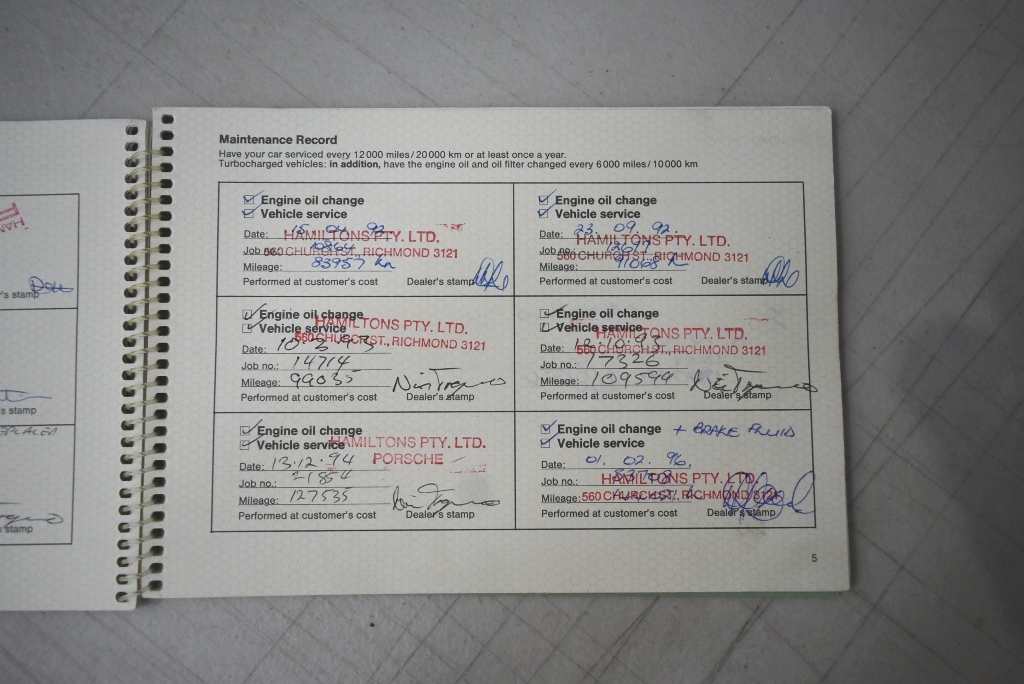 Maintenance Record
Have your car serviced every 12 000 miles/20 000 km or at least once a year.
Turbocharged vehicles: in addition, have the engine oil and oil filter changed every 6 000 miles/10 000 km
Engine oil change
Vehicle service
Date: 15. 04. 92.
HAMILTONS PTY. LTD.
Job no.: 10864
560 CHURCH ST., RICHMOND 3121
Mileage: 83957 km
Performed at customer's cost Dealer's stamp
Engine oil change
Vehicle service
Date: 23. 09. 92.
HAMILTONS PTY. LTD.
Job no.: 12617
560 CHURCH ST., RICHMOND 3121
Mileage: 91068 k
Performed at customer's cost Dealer's stamp
Engine oil change
Vehicle service
HAMILTONS PTY. LTD.
560 CHURCH ST., RICHMOND 3121
Date: 10.6.93
Job no.: 14714
Mileage: 99035
Performed at customer's cost Dealer's stamp
Engine oil change
Vehicle service
HAMILTONS PTY. LTD.
560 CHURCH ST., RICHMOND 3121
Date: 12.10.93
Job no.: 17326
Mileage: 109594
Performed at customer's cost Dealer's stamp
Engine oil change
Vehicle service
HAMILTONS PTY. LTD.
PORSCHE
Date: 13.12.94
Job no.: 21854
Mileage: 127535
Performed at customer's cost Dealer's stamp
Engine oil change + BRAKE FLUID
Vehicle service
Date: 01. 02. 96.
Job no.:
HAMILTONS PTY. LTD.
Mileage:
560 CHURCH ST., RICHMOND 3121
Performed at customer's cost Dealer's stamp
5
HAM
's stamp
s stamp
stamp